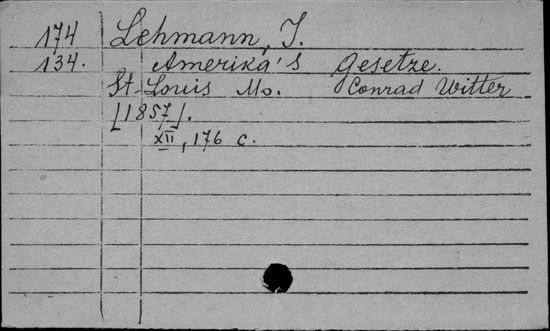 174 Lehmann, J.
134. Amerika's Gesetze.
St. Louis Mo. Conrad Witter
[1857].
XII, 176 c.